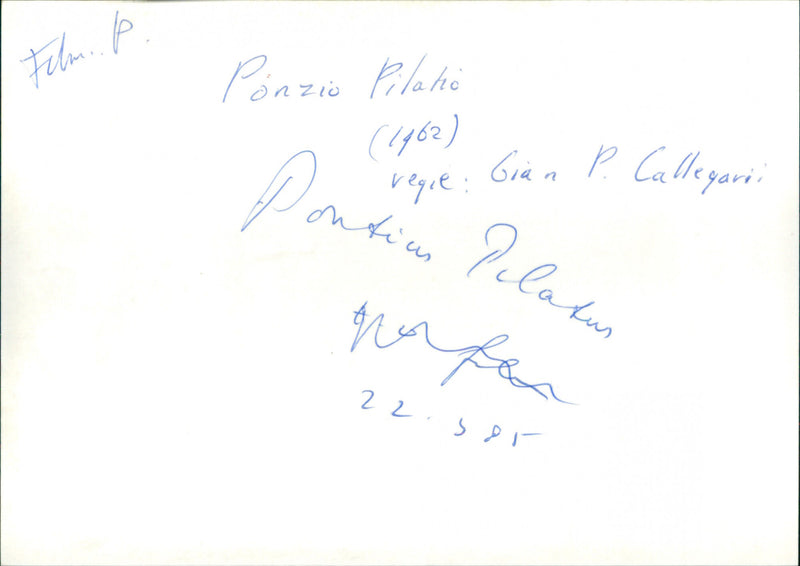 Film. P.
Ponzio Pilatio
(1962)
regie: Gian P. Callegarii
Pontius Pilatus
22. 3 85